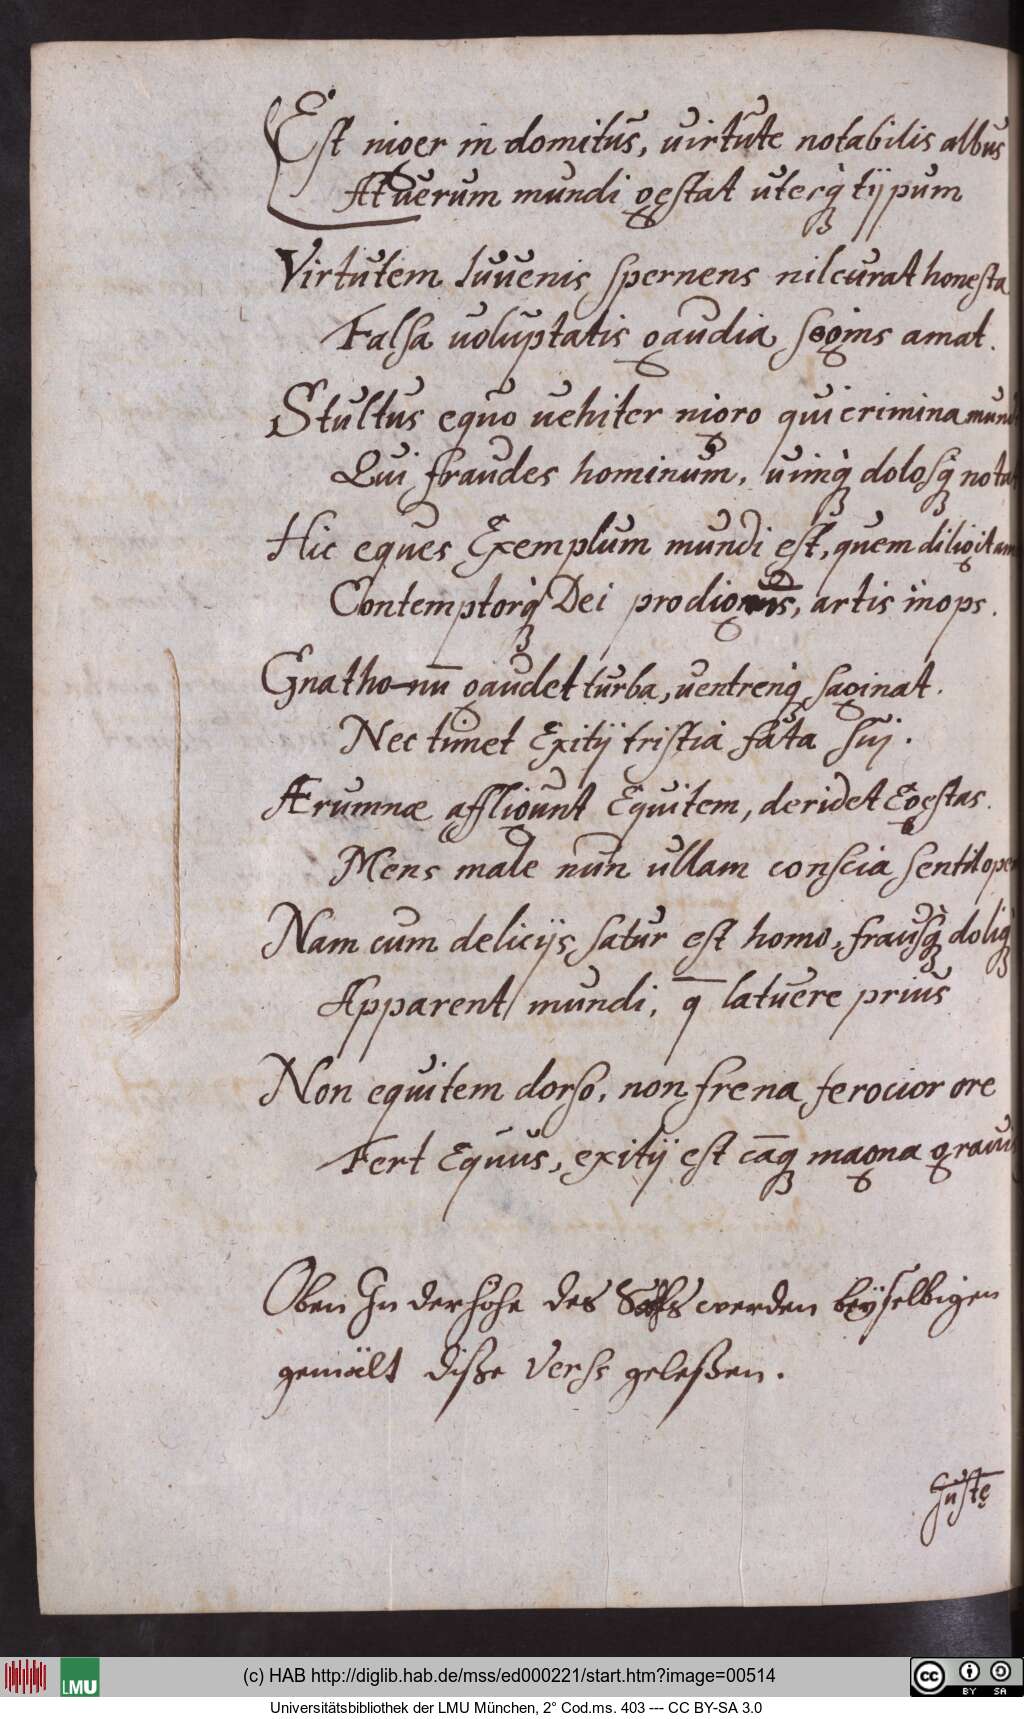 Est niger in domitus, uirtute notabilis albus
At uerum mundi gestat uterq̀ȝ tÿpum
Virtutem Iuuenis spernens nil curat honesta
Falsa uoluptatis gaudia segnis amat.
Stultus equo uehiter nigro qui crimina mundi
Qui fraudes hominum, uimq̀ȝ dolosq̀ȝ notat
Hic eques Exemplum mundi est, quem diligit
Contemptorq̀ȝ Dei prodigus, artis inops.
Gnatho-nū gaudet turba, uentrenq̀ȝ saginat.
Nec timet Exitÿ tristia fata suj.
Ærumnæ affligunt Equitem, deridet Egestas.
Mens male nun ullam conscia sentit
Nam cum delicÿs satur est homo, frausq̀ȝ doliq̀ȝ
Apparent mundi, q̄ latuere prius
Non equitem dorso, non frena ferocior ore
Fert Equus, exitÿ est cāqȝ magna
Oben In der höhe des werden beÿselbigen
gemält diße Verss geleßen.
Iustę
(c) HAB http://diglib.hab.de/mss/ed000221/start.htm?image=00514
LMU
cc BY SA
Universitätsbibliothek der LMU München, 2° Cod.ms. 403 --- CC BY-SA 3.0